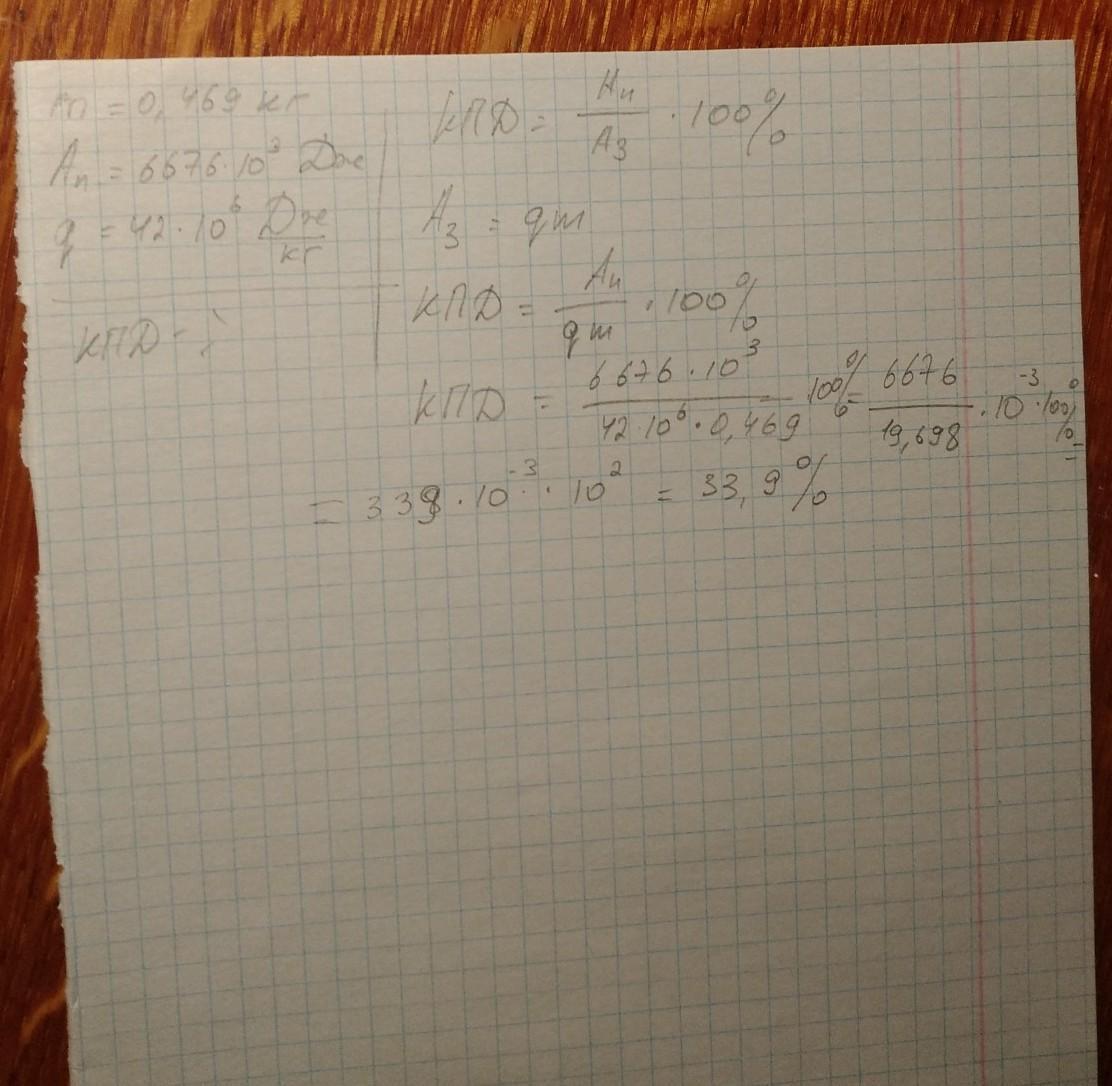 m = 0,469 кг
Aп = 6676·10³ Дж
q = 42·10⁶ Дж/кг
КПД - ?
КПД = Aп/Aз · 100%
Aз = qm
КПД = Aп/qm · 100%
КПД = 6676·10³/42·10⁶·0,469 · 100% = 6676/19,698 · 10⁻³ · 100% =
= 339·10⁻³·10² = 33,9%